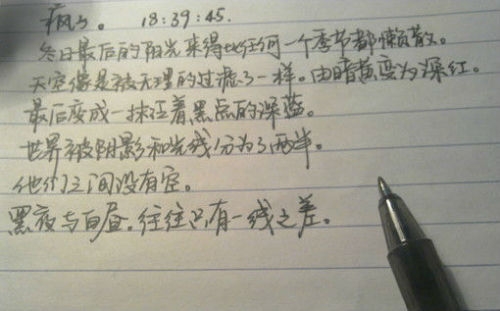 疯了。 18:39:45.
冬日最后的阳光来得比任何一个季节都懒散。
天空像是被无理的过滤了一样。由暗黄变为深红。
最后变成一抹泛着黑点的深蓝。
世界被阴影和光线分为了两半。
他们之间没有空。
黑夜与白昼.往往只有一线之差。